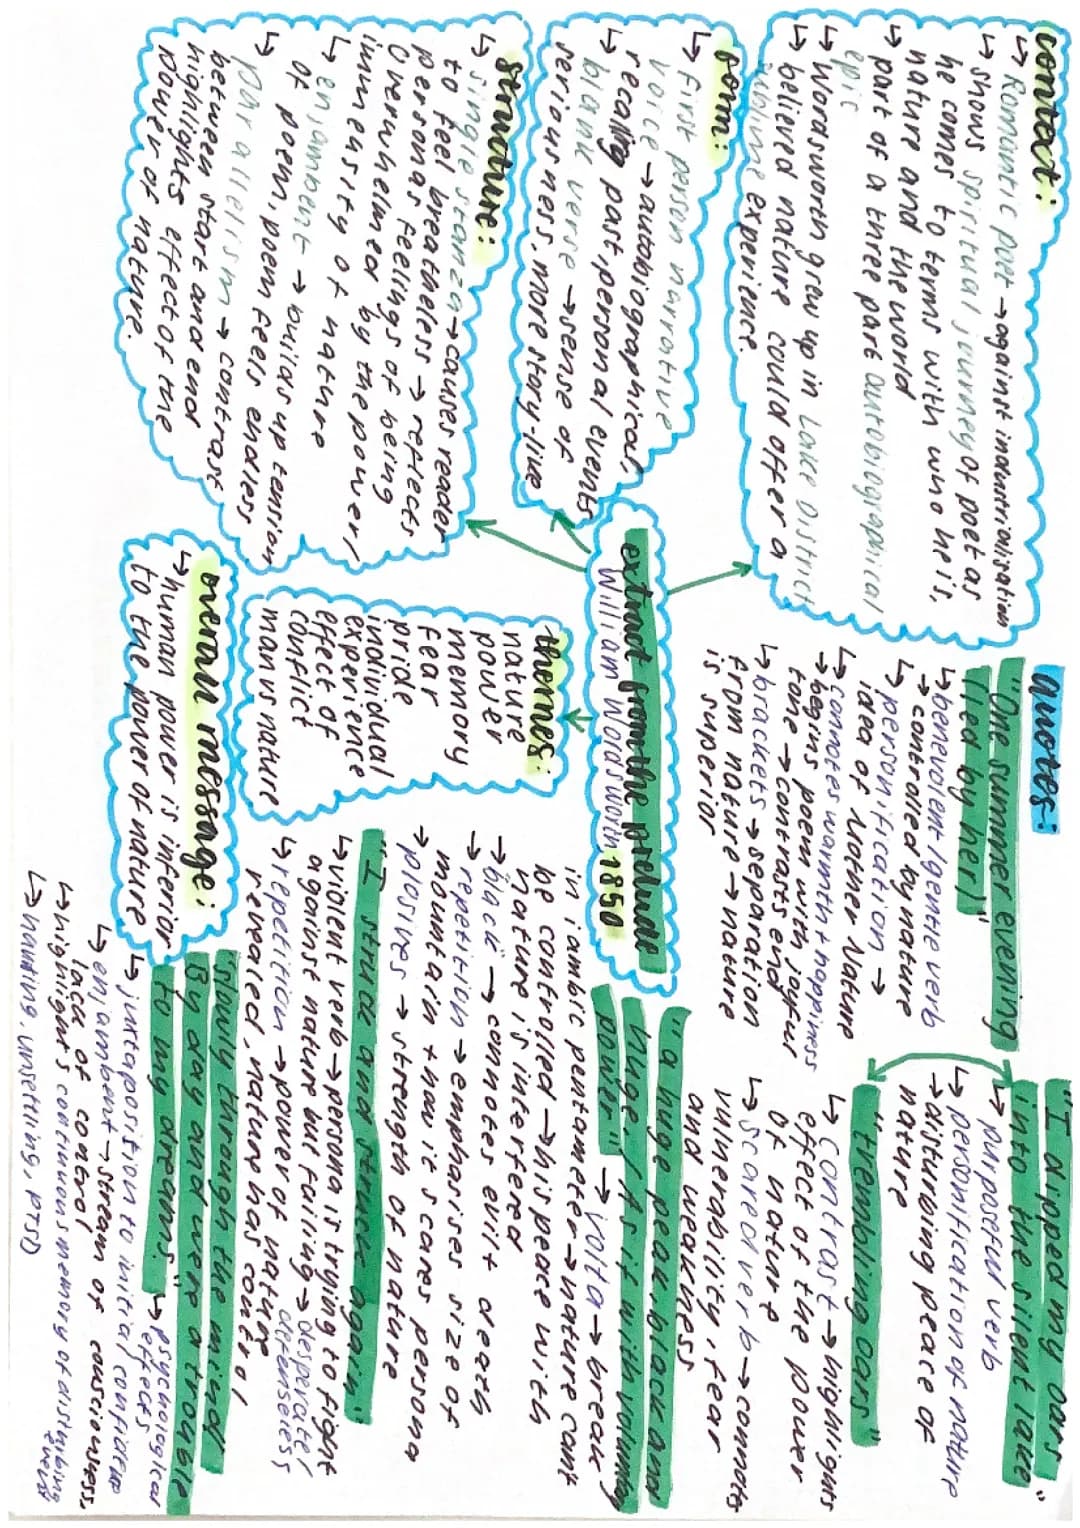 extract from the prelude
William Wordsworth, 1850
context:
↳ Romantic poet → against industrialisation
↳ shows spiritual journey of poet as
he comes to terms with who he is,
nature and the world
↳ part of a three part autobiographical
epic
↳ Wordsworth grew up in Lake District
↳ believed nature could offer a
sublime experience.
form:
↳ first person narrative
voice → autobiographical,
recalling past, personal events
↳ blank verse → sense of
seriousness, more story-like
structure:
↳ single stanza → causes reader
to feel breathless → reflects
personas feelings of being
overwhelmed by the power/
immensity of nature
↳ enjambent → builds up tension
of poem, poem feels endless
↳ parallelism → contrast
between start and end
highlights effect of the
power of nature.
themes:
nature
power
memory
fear
pride
individual
experience
effect of
conflict
man vs nature
overall message:
↳ human power is inferior
to the power of nature
quotes:
"One summer evening
(led by her)"
↳ benevolent/gentle verb
→ controlled by nature
↳ personification →
idea of Mother Nature
↳ connotes warmth + happiness
→ begins poem with joyful
tone → contrasts end
↳ brackets → separation
from nature → nature
is superior
"I dipped my oars
into the silent lake"
↳ purposeful verb
↳ personification of nature
→ disturbing peace of
nature
"trembling oars"
↳ contrast → highlights
effect of the power
of nature
↳ scared verb → connotes
vunerability, fear
and weakness
"a huge peak, black and
huge,/ As if with voluntary
power" → volta → break
in iambic pentameter → nature cant
be controlled → his peace with
nature is interfered
→ "black" → connotes evil + death
→ repetition → emphasises size of
mountain + how it scares persona
→ plosives → strength of nature
"I struck and struck again"
↳ violent verb → persona is trying to fight
against nature but failing → desperate/
defenseless
↳ repetition → power of nature
revealed, nature has control
"slowly through the mind/
By day and were a trouble
to my dreams" ↳ psychological
effects
↳ juxtaposition to initial confidence
↳ enjambent → stream of consciousness,
lack of control
↳ highlights continuous memory of distrubing
event
↳ haunting, unsettling, PTSD